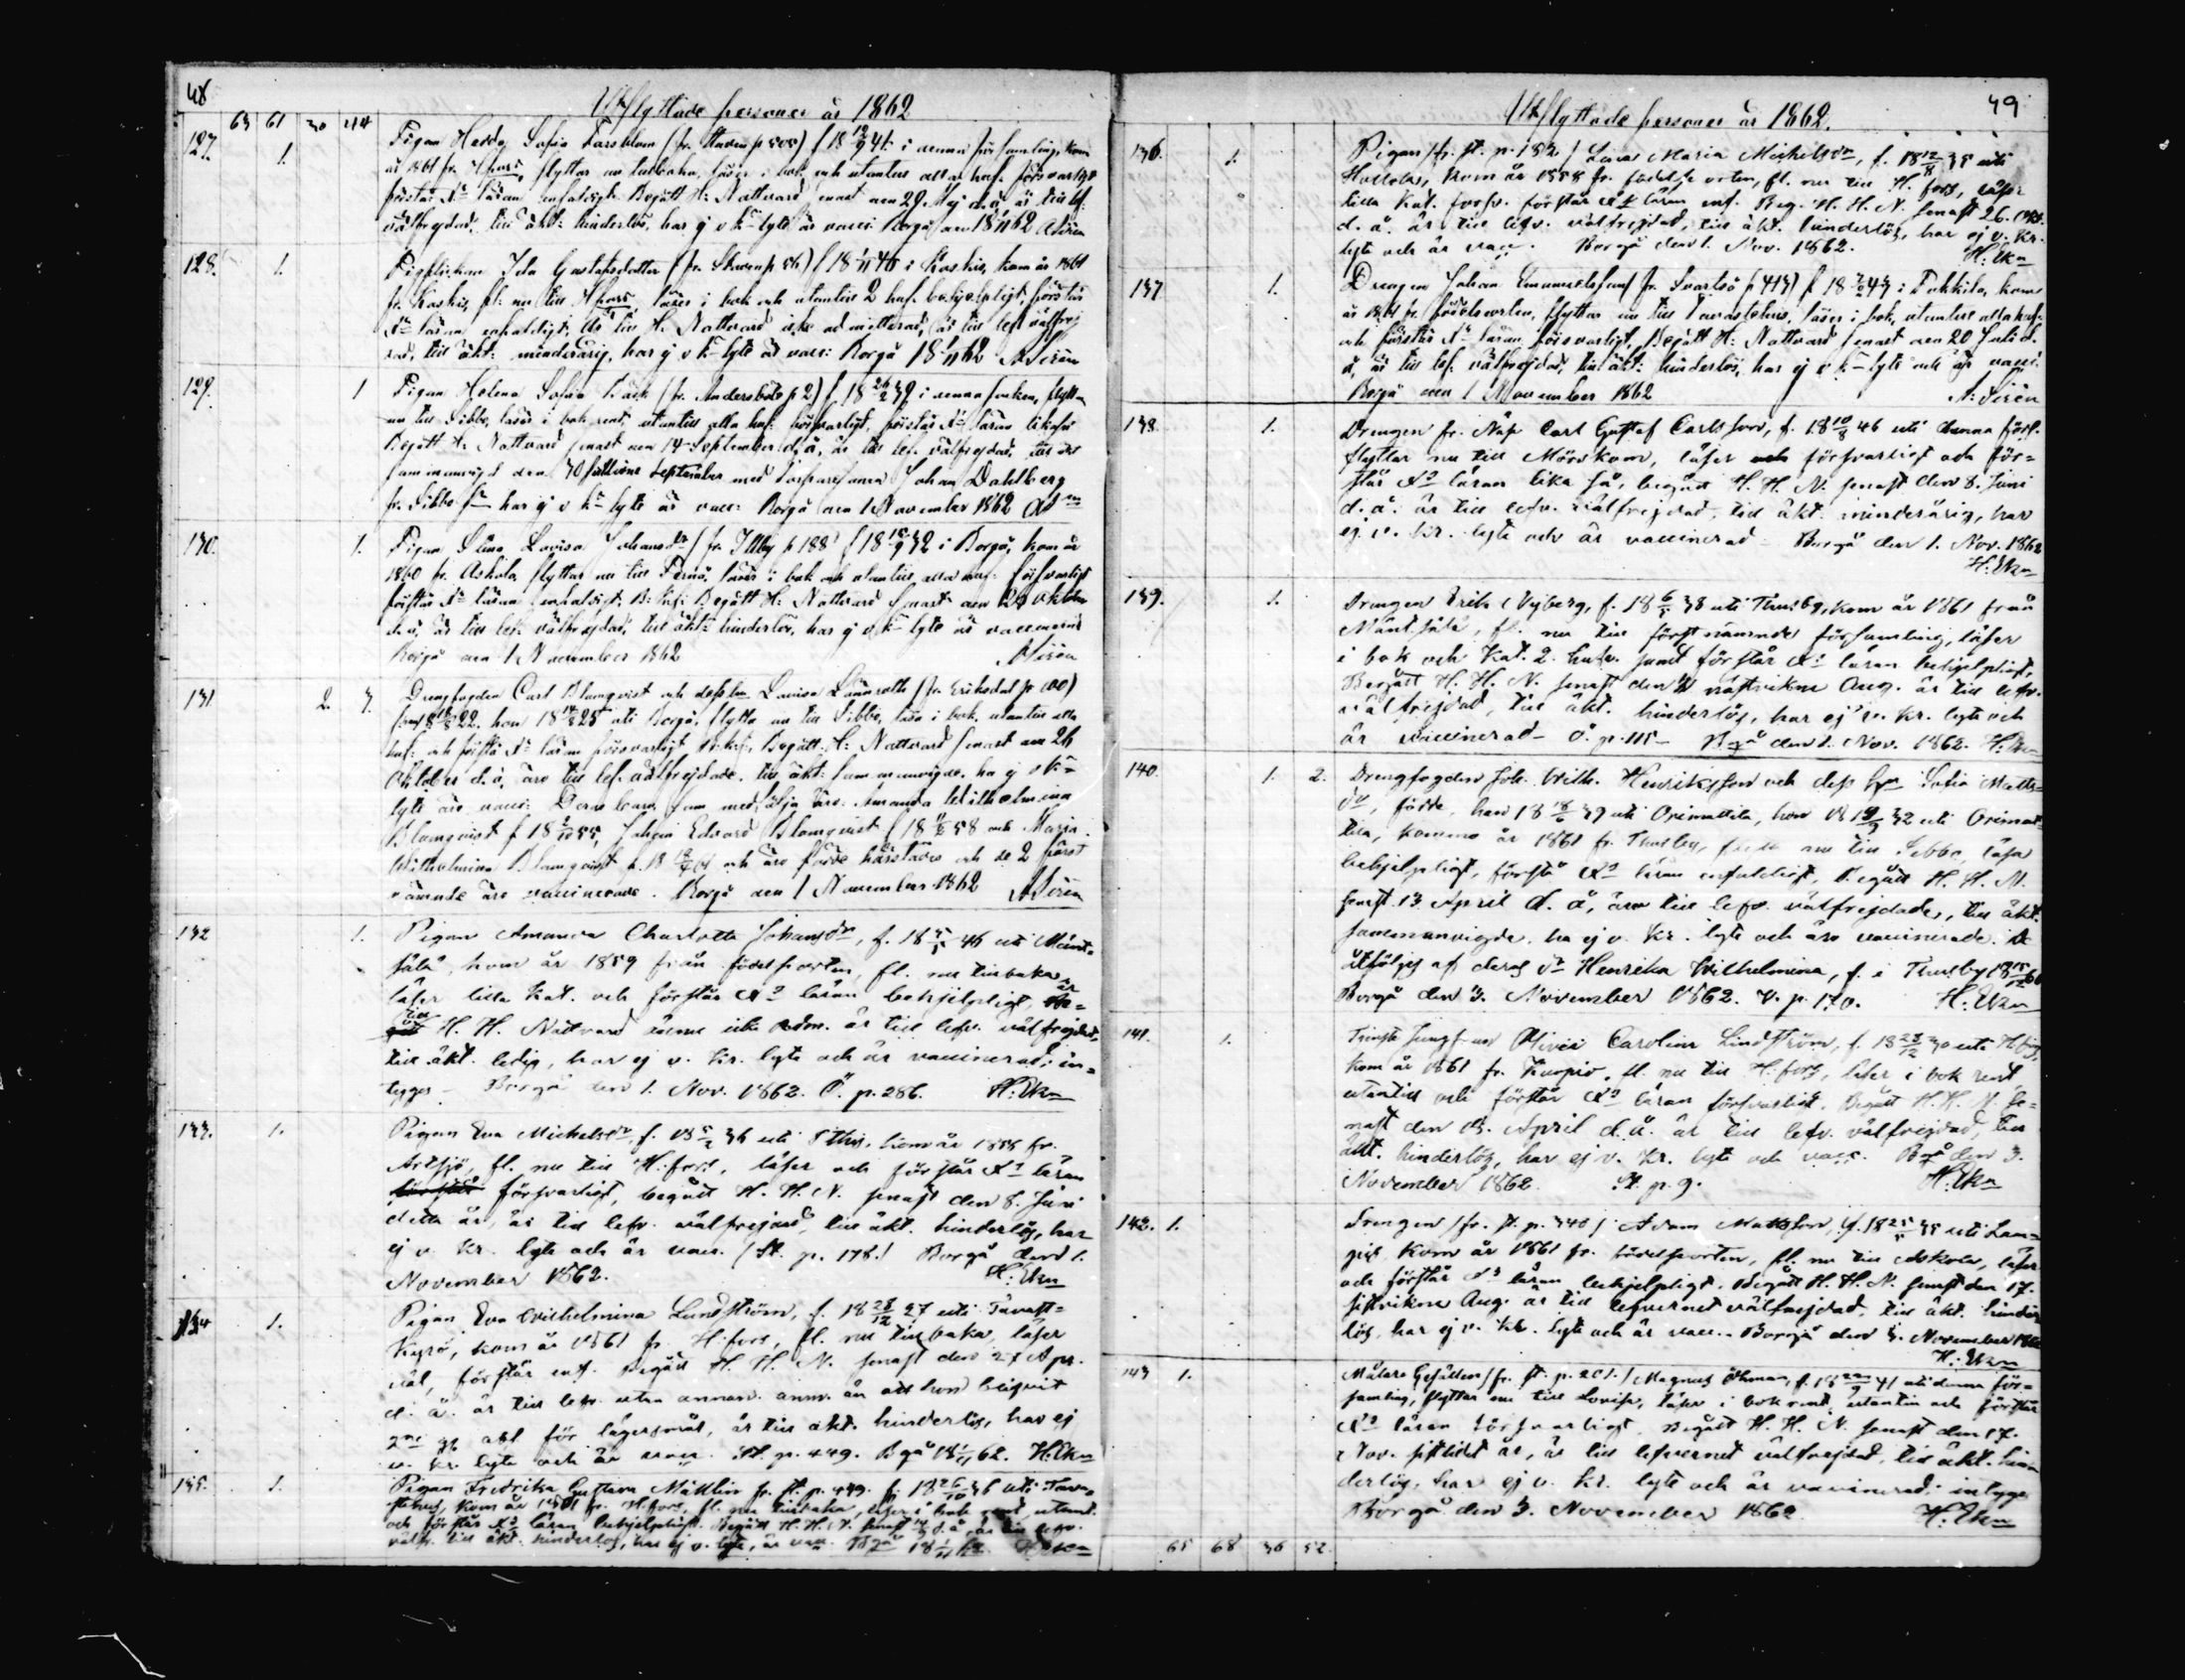 48
Utflyttade personer år 1862
63 61 30 44
127. 1. Pigan Hedda Sofia Forsblom (fr. Staven p 505) f 18 12/9 41 i denna församling, kom
år 1861 fr. Hfors, flyttar nu tillbaka, läser i bok och utantill alla huf. försvarligt
förstår Xs läran enfaldigt Begått H: Nattvard senast den 29 Maj d. å. är till lef.
välfrejdad, till äkt: hinderlös, har ej v k- lyte är vacc: Borgå den 18 1/11 62 ASirén
128. 1. Pigflickan Ida Gustafsdotter (fr. Skaven p 56) f 18 1/11 46 i Koskis, kom år 1861
fr. Koskis, fl: nu till Hfors, läser i bok och utantill 2 huf. behjelpligt, förstår
Xs läran enfaldigt, Är till H. Nattvard icke admitterad, är till lef välfrej
dad, till äkt: minderårig, har ej v k- lyte är vacc: Borgå 18 1/11 62 A Sirén
129. 1 Pigan Helena Sofia Bäck (fr. Andersböle p 2) f 18 26/2 39 i denna socken, flyttar
nu till Sibbo, läser i bok rent, utantill alla huf: försvarligt, förstår Xs läran likaså
Begått H: Nattvard senast den 14 September d. å., är till lef. välfrejdad, till äkt
sammanvigd den 30 sistledne September med Torparesonen Johan Dahlberg
fr. Sibbo sn har ej v k- lyte är vacc: Borgå den 1 November 1862 ASn
130. 1. Pigan Stina Lovisa Johansdr (fr. Illby p 188) f 18 18/9 32 i Borgå, kom år
1860 fr. Askola, flyttar nu till Pernå, läser i bok och utantill alla huf: försvarligt
förstår Xs läran enfaldigt, Begått H: Nattvard senast den 26 Oktober
d. å., är till lef. välfrejdad, till äkt: hinderlös, har ej v k- lyte är vaccinerad
Borgå den 1 November 1862 ASirén
131 2. 3. Drengfogden Carl Blomqvist och dess hu Lovisa Lönnroth (fr. Eriksdal p 100)
22. hon 18 25 uti Borgå, flytta nu till Sibbo, läsa i bok, utantill alla
huf. och förstå Xs läran försvarligt Begått H: Nattvard senast den 26
Oktober d. å., äro till lef. välfrejdade, till äkt: sammanvigde, ha ej v k-
lyte äro vacc: Deras barn som medfölja äro: Amanda Wilhelmina
Blomqvist f 18 2/10 55, Johan Edvard Blomqvist f 18 58 och Maria
Wilhelmina Blomqvist f. 18 61 och äro födde härstädes och de 2 först
nämnde äro vaccinerade. Borgå den 1 November 1862 ASirén
132 1. Pigan Amanda Charlotta Johansdr, f. 18 46 uti Mänt-
sälä, kom år 1859 från födelseorten, fl. nu tillbaka
läser lilla Kat. och förstår Xs läran behjelpligt, är
till H. H. Nattvard ännu icke adm. är till lefv. välfrejdad,
till äkt. ledig, har ej v. kr. lyte och är vaccinerad; in-
tygas – Borgå den 1. Nov. 1862. Ö. p. 286. H: Ekn
133. 1. Pigan Eva Michelsdr, f. 18 5/2 36 uti Ithis, kom år 1858 fr.
Artsjö, fl. nu till H:fors, läser och förstår Xs läran
försvarligt, begått H. H. N. senast den 8. Juni
detta år, är till lefv. välfrejdad, till äkt. hinderlös, har
ej v. kr. lyte och är vacc. (St. p. 178.) Borgå den 1.
November 1862. H: Ekn
134 1. Pigan Eva Wilhelmina Lundström, f. 18 28/12 27 uti Tavast-
kyrö, kom år 1861 fr. H:fors, fl. nu tillbaka, läser
väl, förstår enf. Begått H. H. N. senast den 27 Apr.
d. å. är till lefv. utan annan anm. än att hon blifvit
2ne gr. abs. för lägersmål, är till äkt. hinderlös, har ej
v. kr. lyte och är vacc. St. p. 449. Bgå 18 1/11 62. H: Ekn
135. 1. Pigan Fredrika Gustava Mattlin fr. St. p. 449. f. 18 26/10 36 uti Tava-
stehus, kom år 1861 fr. H:fors, fl. nu tillbaka, läser i bok rent, utant.
och förstår Xs läran behjelpligt. Begått H. H. N. senast d. å., är till lefv.
välfr. till äkt. hinderlös, har ej v. lyte, är vacc. Bgå 18 1/11 62. H: Ekn
49
Utflyttade personer år 1862.
136. 1. Pigan (fr. St. p. 182) Lena Maria Michelsdr, f. 18 12/8 35 uti
Hollola, kom år 1858 fr. födelseorten, fl. nu till H:fors, läser
lilla Kat. försv. förstår Xs läran enf. Beg. H. H. N. senast 26. Okt.
d. å. är till lefv. välfrejdad, till äkt. hinderlös, har ej v. kr.
lyte och är vacc. Borgå den 1. Nov. 1862. H: Ekn
137 1. Drengen Johan Emanuelsson fr. Svartså p 413 f 18 7/2 43 i Pukkila, kom
år 1861 fr. födelseorten, flyttar nu till Tavastehus, läser i bok, utantill alla huf.
och förstår Xs läran försvarligt, Begått H: Nattvard senast den 20 Juli d.
å., är till lef. välfrejdad, till äkt: hinderlös, har ej v k- lyte och är vacc:
Borgå den 1 November 1862 A: Sirén
138. 1. Drengen fr. Näse Carl Gustaf Carlsson, f. 18 10/8 46 uti denna förs.
flyttar nu till Mörskom, läser försvarligt och för-
står Xs läran lika så, begått H. H. N. senast den 8. Juni
d. å. är till lefv. välfrejdad, till äkt. minderårig, har
ej v. kr. lyte och är vaccinerad – Borgå den 1. Nov. 1862
H: Ekn
139. 1. Drengen Erik Nyberg, f. 18 6/5 38 uti Thusby, kom år 1861 från
Mäntsälä, fl. nu till förstnämnde församling, läser
i bok och Kat. 2. hufv. samt förstår Xs läran behjelpligt,
Begått H. H. N. senast den nästvikne Aug. är till lefv.
välfrejdad, till äkt. hinderlös, har ej v. kr. lyte och
är vaccinerad – Ö. p. 115 – Bgå den 1. Nov. 1862. H: Ekn
140. 1. 2. Drengfogden Joh. Wilh. Henriksson och dess hu Sofia Matts-
dr, födde, han 18 39 uti Orimattila, hon 18 19/9 32 uti Orimat-
tila, komne år 1861 fr. Thusby, flytta nu till Sibbo, läsa
behjelpligt, förstå Xs läran enfaldigt, Begått H. H. N.
senast 13 April d. å., äro till lefv. välfrejdade, till äkt.
sammanvigde, ha ej v. kr. lyte och äro vaccinerade. De
åtföljes af deras dr Henrika Wilhelmina, f. i Thusby 18 15/12 60
Borgå den 3. November 1862. V. p. 170. H: Ekn
141. 1. Jungfrun Olivia Carolina Lindström, f. 18 23/12 30 uti H:fors,
kom år 1861 fr. Kuopio, fl. nu till H:fors, läser i bok rent
utantill och förstår Xs läran försvarligt. Begått H. H. N. se-
nast den 13. April d. å. är till lefv. välfrejdad, till
äkt. hinderlös, har ej v. kr. lyte och vacc. Bgå den 3.
November 1862. St. p. 9. H: Ekn
142. 1. Drengen (fr. St. p. 340) Adam Mattsson, f. 18 25 35 uti Lam-
pis, kom år 1861 fr. födelseorten, fl. nu till Askola, läser
och förstår Xs läran behjelpligt. Begått H. H. N. senast den 17.
sistvikne Aug. är till lefvernet välfrejdad, till äkt. hinder-
lös, har ej v. kr. lyte och är vacc. – Borgå den 3. November 1862
H: Ekn
143 1. Målare Gesällen (fr. St. p. 201.) Magnus Öhman, f. 18 22/9 41 uti denna för-
samling, flyttar nu till Lovisa, läser i bok rent, utantill och förstår
Xs läran försvarligt. Begått H. H. N. senast den 17.
Nov. sistlidet år, är till lefvernet välfrejdad, till äkt. hin-
derlös, har ej v. kr. lyte och är vaccinerad: intygar
Borgå den 3. November 1862. H: Ekn
65 68 36 52.